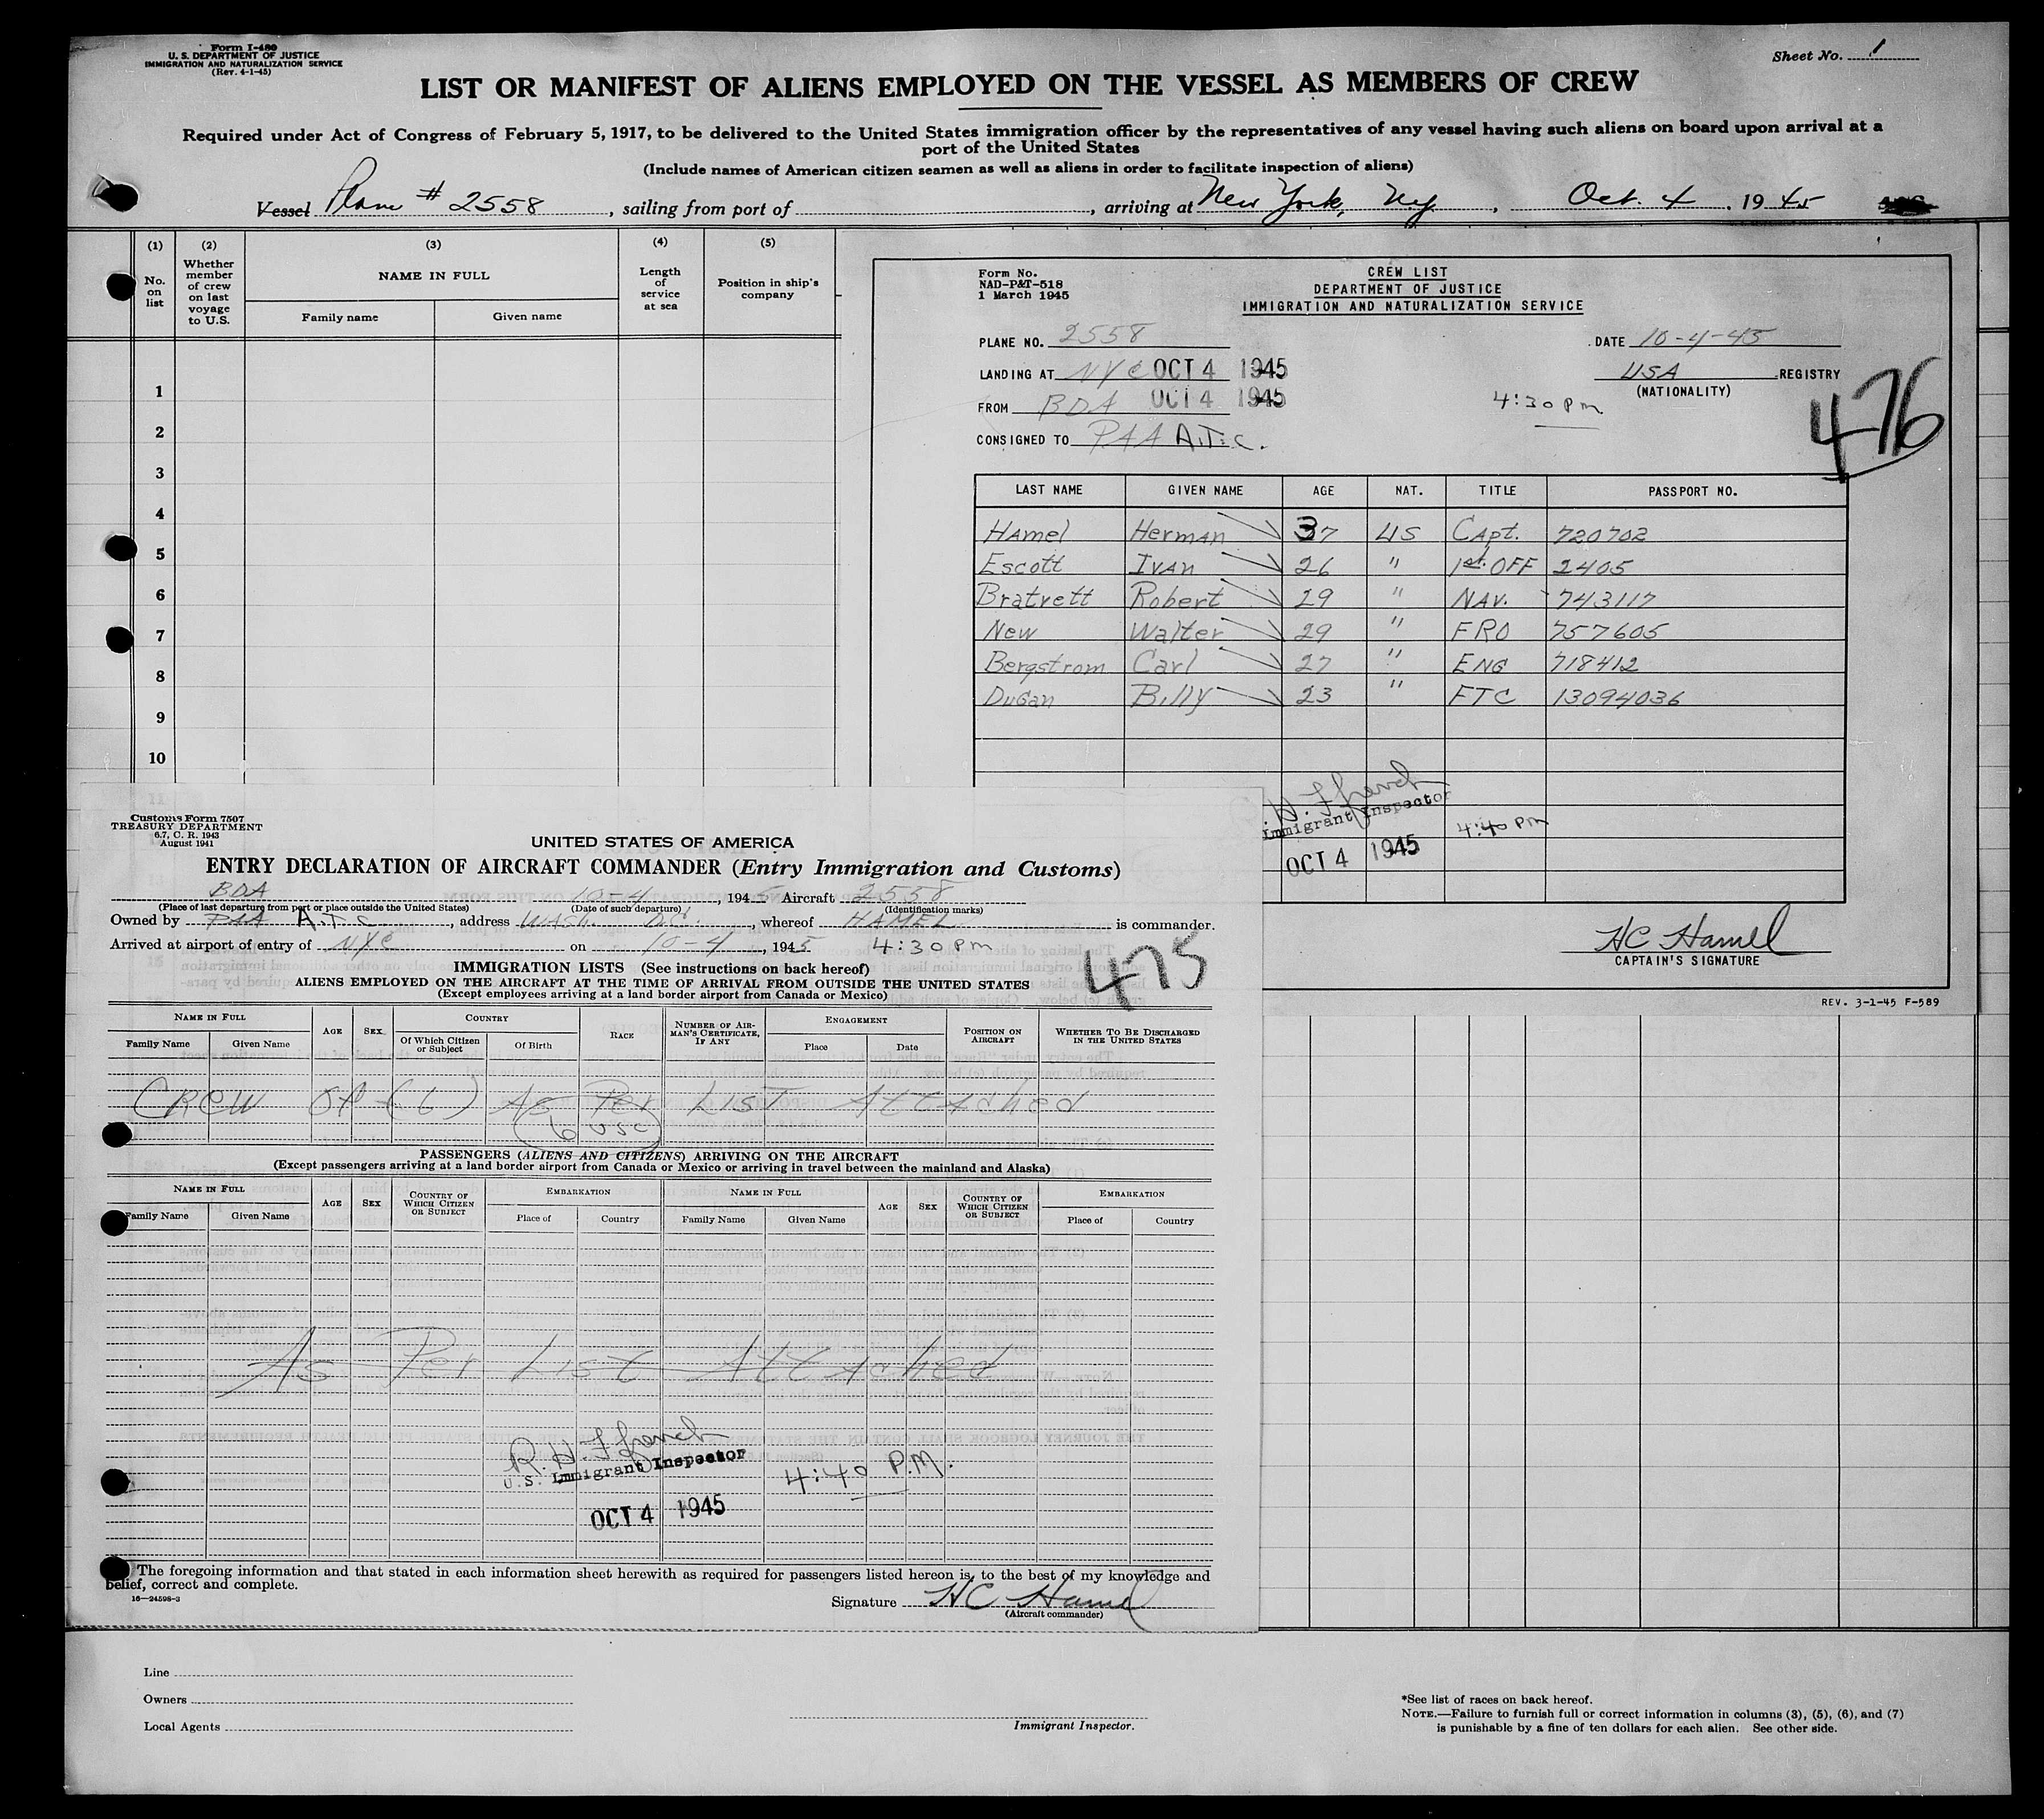 Form I-480
U. S. DEPARTMENT OF JUSTICE
IMMIGRATION AND NATURALIZATION SERVICE
(Rev. 4-1-45)
Sheet No. 1
LIST OR MANIFEST OF ALIENS EMPLOYED ON THE VESSEL AS MEMBERS OF CREW
Required under Act of Congress of February 5, 1917, to be delivered to the United States immigration officer by the representatives of any vessel having such aliens on board upon arrival at a
port of the United States
(Include names of American citizen seamen as well as aliens in order to facilitate inspection of aliens)
Vessel Plane # 2558, sailing from port of , arriving at New York, N.Y., Oct. 4, 1945
(1) (2) (3) (4) (5)
No. on list
Whether member of crew on last voyage to U.S.
NAME IN FULL
Family name Given name
Length of service at sea
Position in ship's company
1
2
3
4
5
6
7
8
9
10
Form No.
NAD-P&T-518
1 March 1945
CREW LIST
DEPARTMENT OF JUSTICE
IMMIGRATION AND NATURALIZATION SERVICE
PLANE NO. 2558
DATE 10-4-45
LANDING AT NYC OCT 4 1945
USA REGISTRY
(NATIONALITY)
FROM BDA OCT 4 1945
4:30 pm
476
CONSIGNED TO PAA A.T.C.
LAST NAME GIVEN NAME AGE NAT. TITLE PASSPORT NO.
Hamel Herman 37 US Capt. 720702
Escott Ivan 26 " 1st OFF 2405
Bratvett Robert 29 " NAV. 743117
New Walter 29 " FRO 757605
Bergstrom Carl 27 " ENG 718412
Dugan Billy 23 " FTC 13094036
Immigrant Inspector
4:40 pm
OCT 4 1945
HC Hamel
CAPTAIN'S SIGNATURE
REV. 3-1-45 F-589
Customs Form 7507
TREASURY DEPARTMENT
6.7, C. R. 1943
August 1941
UNITED STATES OF AMERICA
ENTRY DECLARATION OF AIRCRAFT COMMANDER (Entry Immigration and Customs)
BDA 10-4, 1945 Aircraft 2558
(Place of last departure from port or place outside the United States) (Date of such departure) (Identification marks)
Owned by PAA A.T.C, address WASH. D.C., whereof HAMEL is commander.
Arrived at airport of entry of NYC on 10-4, 1945 4:30 pm
475
IMMIGRATION LISTS (See instructions on back hereof)
ALIENS EMPLOYED ON THE AIRCRAFT AT THE TIME OF ARRIVAL FROM OUTSIDE THE UNITED STATES
(Except employees arriving at a land border airport from Canada or Mexico)
NAME IN FULL AGE SEX COUNTRY RACE NUMBER OF AIRMAN'S CERTIFICATE, IF ANY ENGAGEMENT POSITION ON AIRCRAFT WHETHER TO BE DISCHARGED IN THE UNITED STATES
Family Name Given Name Of Which Citizen or Subject Of Birth Place Date
Crew of (6) As Per List Attached
(6 USC)
PASSENGERS (ALIENS AND CITIZENS) ARRIVING ON THE AIRCRAFT
(Except passengers arriving at a land border airport from Canada or Mexico or arriving in travel between the mainland and Alaska)
NAME IN FULL AGE SEX COUNTRY OF WHICH CITIZEN OR SUBJECT EMBARKATION NAME IN FULL AGE SEX COUNTRY OF WHICH CITIZEN OR SUBJECT EMBARKATION
Family Name Given Name Place of Country Family Name Given Name Place of Country
As Per List Attached
U.S. Immigrant Inspector
4:40 P.M.
OCT 4 1945
The foregoing information and that stated in each information sheet herewith as required for passengers listed hereon is, to the best of my knowledge and
belief, correct and complete.
16—24598-3
Signature HC Hamel
(Aircraft commander)
Line
Owners
Local Agents
Immigrant Inspector.
*See list of races on back hereof.
NOTE.—Failure to furnish full or correct information in columns (3), (5), (6), and (7)
is punishable by a fine of ten dollars for each alien. See other side.